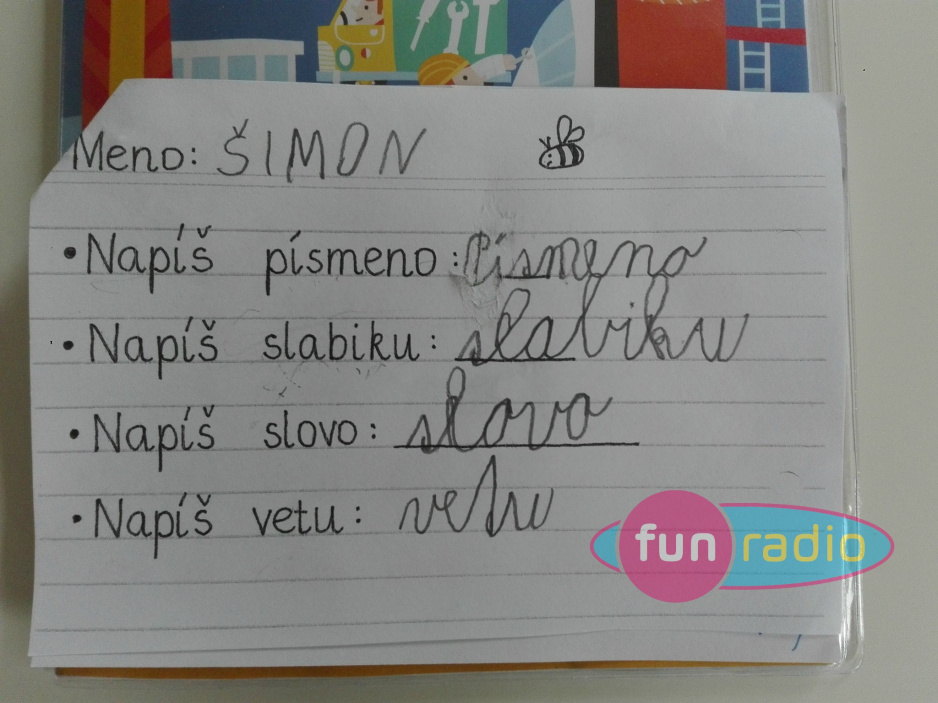 Meno: ŠIMON
• Napíš písmeno: písmeno
• Napíš slabiku: slabiku
• Napíš slovo: slovo
• Napíš vetu: vetu
fun radio